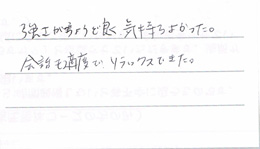 強さがちょうど良く、気持ちよかった。
会話も適度で、リラックスできた。